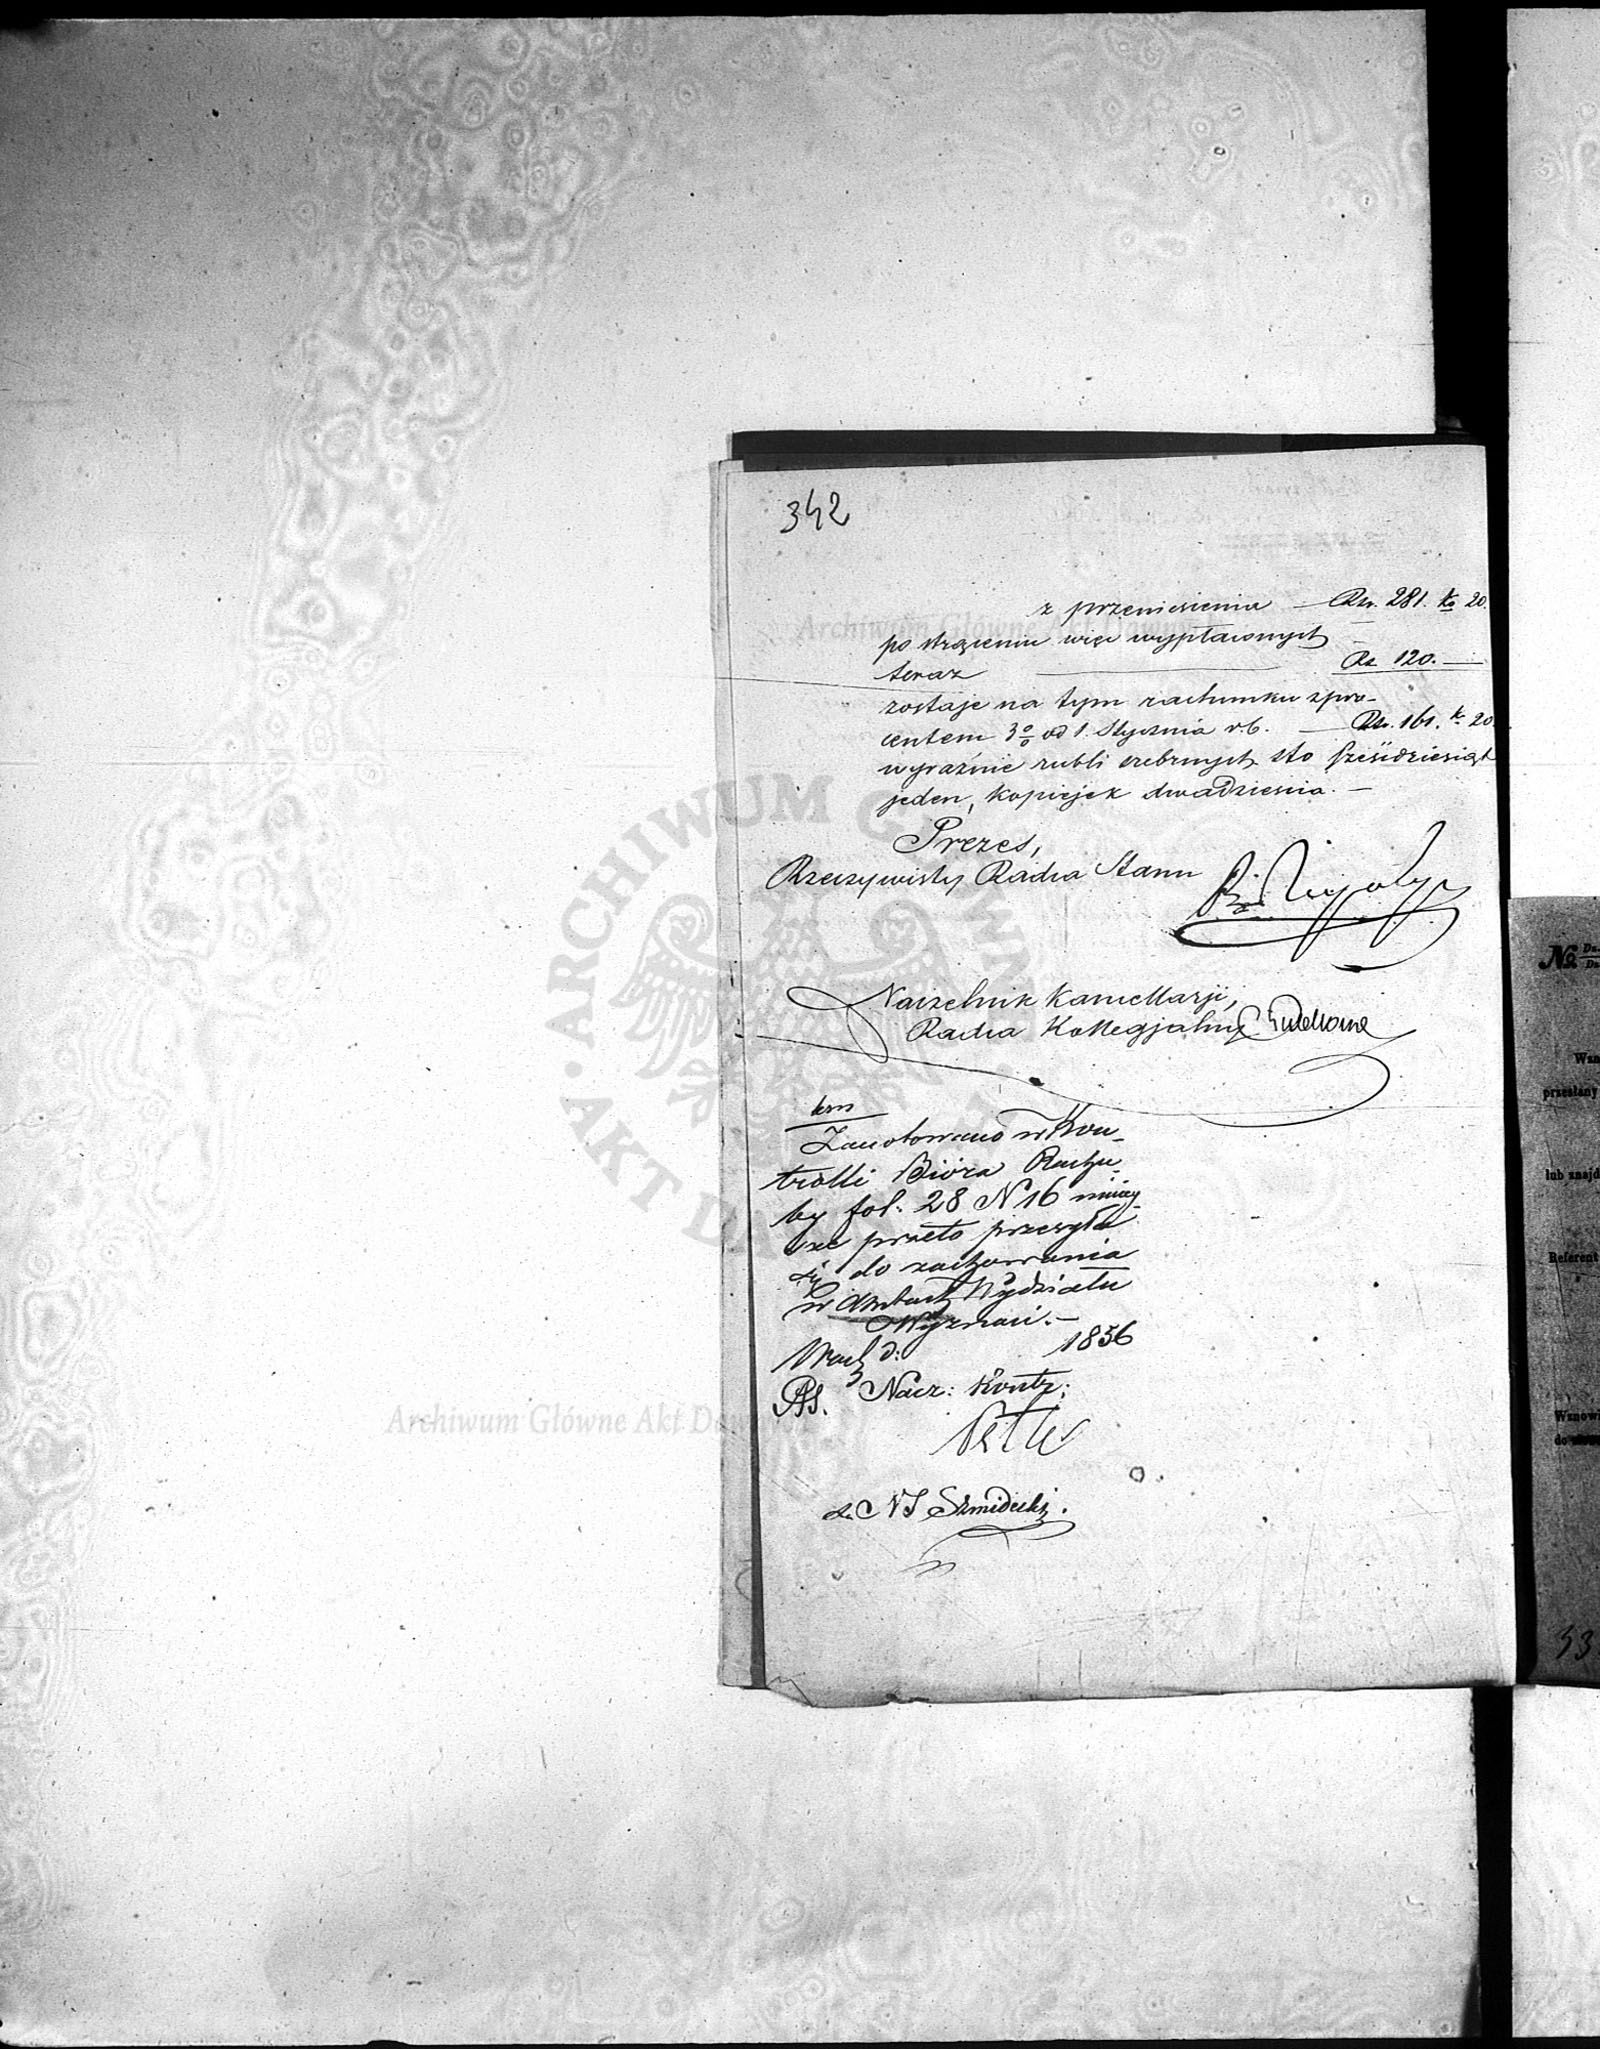 342
z przeniesienia — Rsr. 281. ko 20.
po strąceniu więc wypłaconych
teraz — Rs 120. —
zostaje na tym rachunku z pro-
centem 3% od 1. Stycznia r.b. — Rsr. 161. k. 20
wyraźnie rubli srebrnych sto sześćdziesiąt
jeden, kopiejek dwadzieścia. —
Prezes,
Rzeczywisty Radca Stanu
Naczelnik Kancellarji,
Radca Kollegjalny
Zanotowano w Kon-
trolli Bióra Rachu-
by fol: 28 N 16
przeto przesyła
się do zachowania
w Aktach Wydziału
Wyznań. —
d: 1856
Nacz: Kontr:
Szmidecki.
ARCHIWUM GŁÓWNE AKT DAWNYCH
Archiwum Główne Akt Dawnych
Archiwum Główne Akt Dawnych
№
przesłany
lub znajd
Referent
Wznowi
do